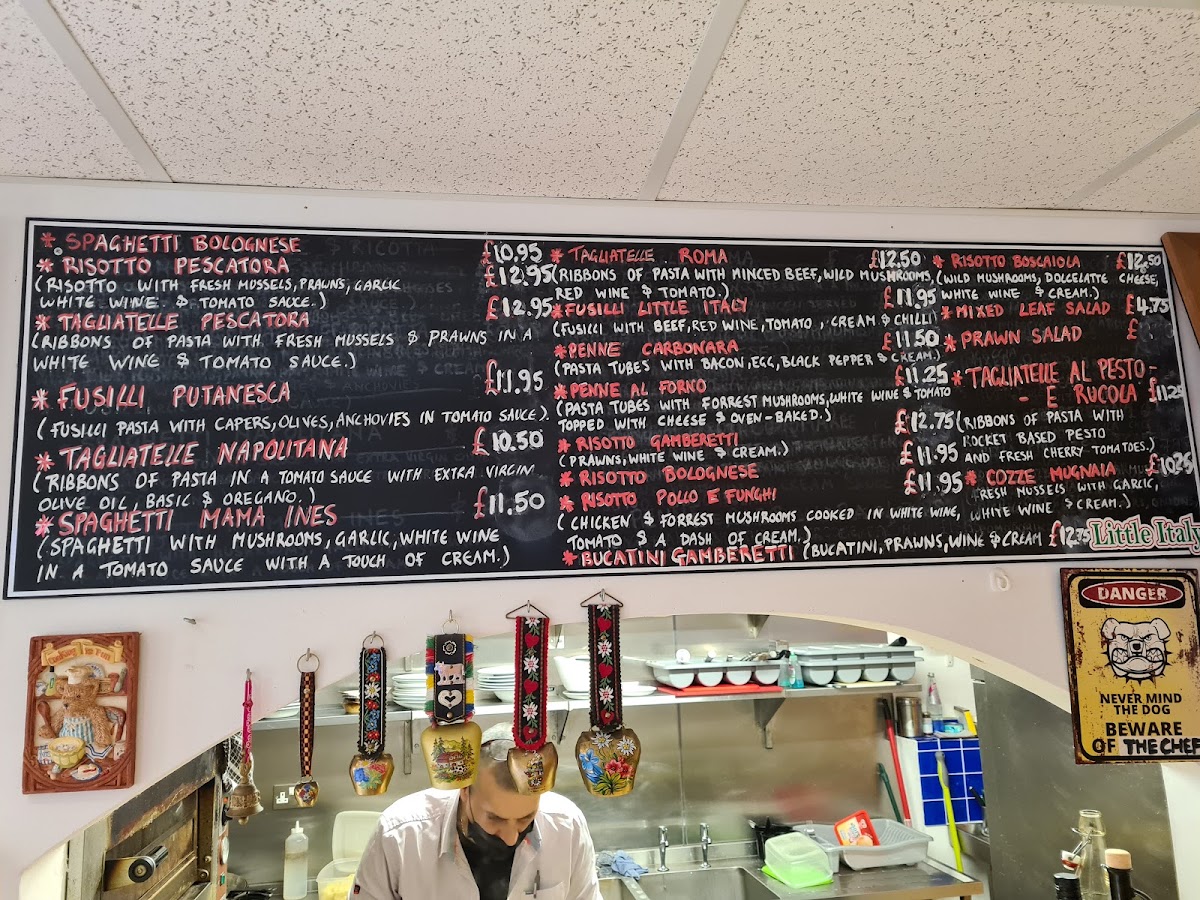 * SPAGHETTI BOLOGNESE £10.95
* RISOTTO PESCATORA £12.95
(RISOTTO WITH FRESH MUSSELS, PRAWNS, GARLIC
WHITE WINE & TOMATO SAUCE.)
* TAGLIATELLE PESCATORA £12.95
(RIBBONS OF PASTA WITH FRESH MUSSELS & PRAWNS IN A
WHITE WINE & TOMATO SAUCE.)
* FUSILLI PUTANESCA £11.95
(FUSILLI PASTA WITH CAPERS, OLIVES, ANCHOVIES IN TOMATO SAUCE).
* TAGLIATELLE NAPOLITANA £10.50
(RIBBONS OF PASTA IN A TOMATO SAUCE WITH EXTRA VIRGIN
OLIVE OIL, BASIL & OREGANO.)
* SPAGHETTI MAMA INES £11.50
(SPAGHETTI WITH MUSHROOMS, GARLIC, WHITE WINE
IN A TOMATO SAUCE WITH A TOUCH OF CREAM.)
* TAGLIATELLE ROMA £12.50
(RIBBONS OF PASTA WITH MINCED BEEF, WILD MUSHROOMS,
RED WINE & TOMATO.)
* FUSILLI LITTLE ITALY £11.95
(FUSILLI WITH BEEF, RED WINE, TOMATO, CREAM & CHILLI)
* PENNE CARBONARA £11.50
(PASTA TUBES WITH BACON, EGG, BLACK PEPPER & CREAM.)
* PENNE AL FORNO £11.25
(PASTA TUBES WITH FORREST MUSHROOMS, WHITE WINE & TOMATO
TOPPED WITH CHEESE & OVEN-BAKED.)
* RISOTTO GAMBERETTI £12.75
(PRAWNS, WHITE WINE & CREAM.)
* RISOTTO BOLOGNESE £11.95
* RISOTTO POLLO E FUNGHI £11.95
(CHICKEN & FORREST MUSHROOMS COOKED IN WHITE WINE,
TOMATO & A DASH OF CREAM.)
* BUCATINI GAMBERETTI (BUCATINI, PRAWNS, WINE & CREAM £12.75
* RISOTTO BOSCAIOLA £12.50
(WILD MUSHROOMS, DOLCELATTE CHEESE,
WHITE WINE & CREAM.)
* MIXED LEAF SALAD £4.75
* PRAWN SALAD £
* TAGLIATELLE AL PESTO -
- E RUCOLA £11.25
(RIBBONS OF PASTA WITH
ROCKET BASED PESTO
AND FRESH CHERRY TOMATOES.)
* COZZE MUGNAIA £10.25
(FRESH MUSSELS WITH GARLIC,
WHITE WINE & CREAM.)
Little Italy
DANGER
NEVER MIND
THE DOG
BEWARE
OF THE CHEF